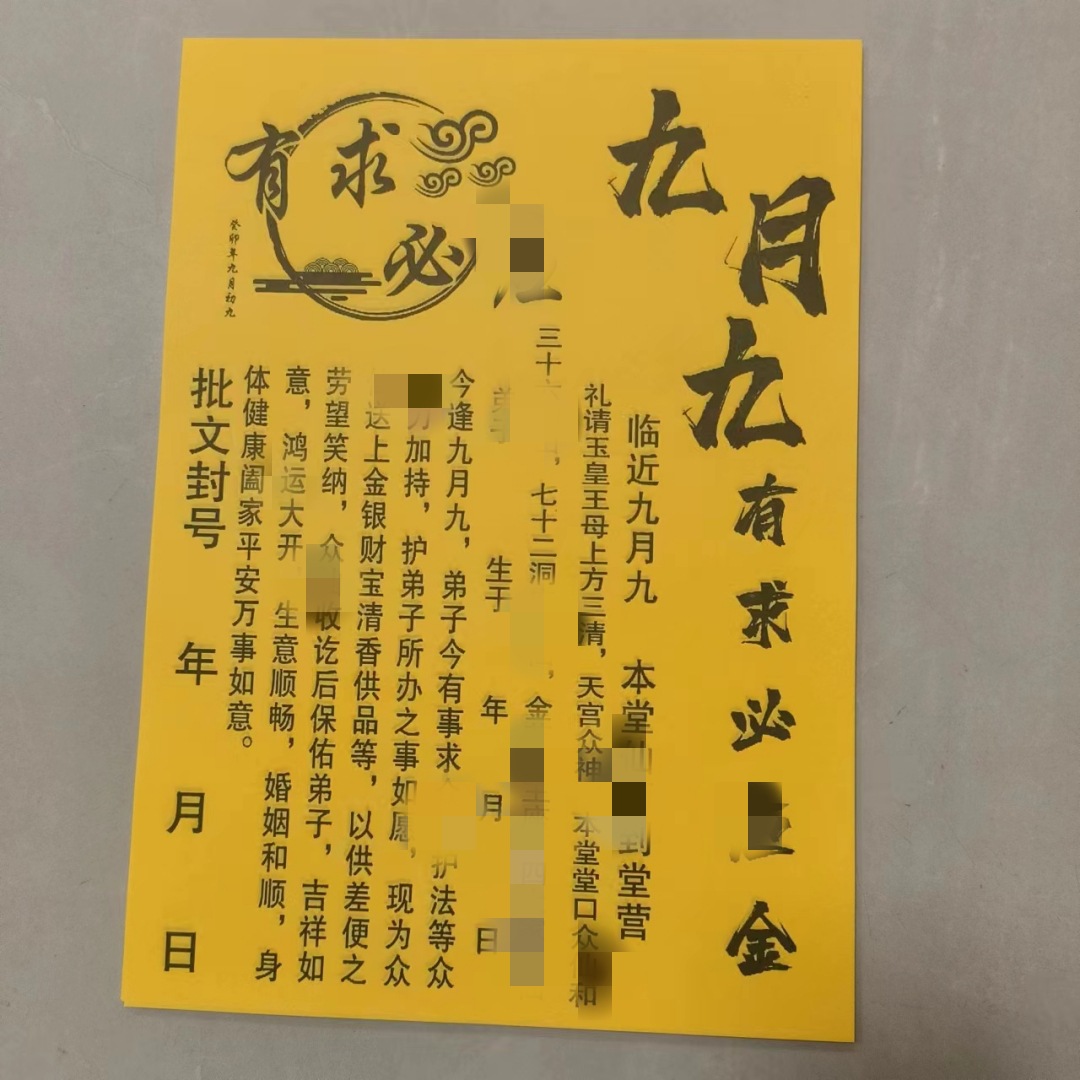 九月九有求必金
临近九月九 本堂到堂营
礼请玉皇王母上方三清，天宫众神 本堂堂口众仙和
三十 ，七十二洞 ，金
生于 年 月 日
今逢九月九，弟子今有事求 护法等众
加持，护弟子所办之事如愿，现为众
送上金银财宝清香供品等，以供差便之
劳望笑纳，众 收讫后保佑弟子，吉祥如
意，鸿运大开 生意顺畅，婚姻和顺，身
体健康阖家平安万事如意。
批文封号 年 月 日
有求必
癸卯年九月初九